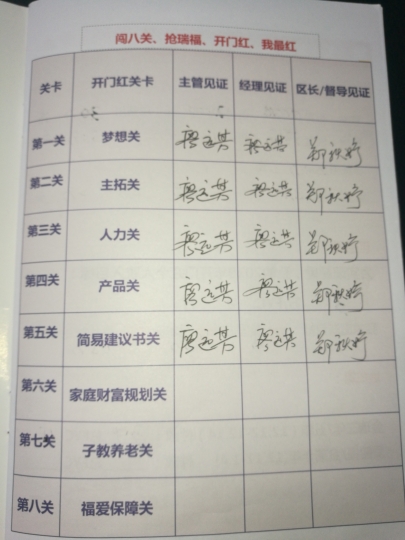 闯八关、抢瑞福、开门红、我最红
关卡 开门红关卡 主管见证 经理见证 区长/督导见证
第一关 梦想关 廖运芳 廖运芳 郑秋婷
第二关 主拓关 廖运芳 廖运芳 郑秋婷
第三关 人力关 廖运芳 廖运芳 郑秋婷
第四关 产品关 廖运芳 廖运芳 郑秋婷
第五关 简易建议书关 廖运芳 廖运芳 郑秋婷
第六关 家庭财富规划关
第七关 子教养老关
第八关 福爱保障关